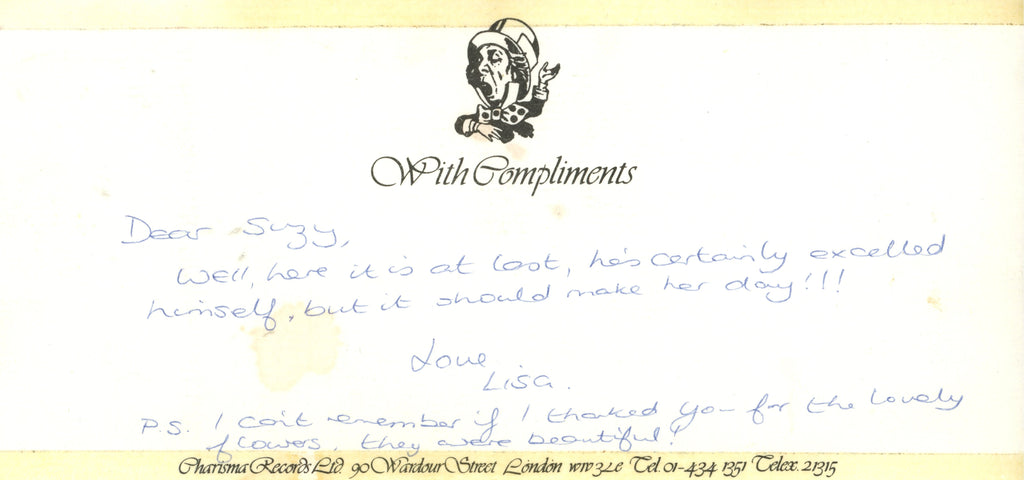 With Compliments
Dear Suzy,
Well, here it is at last, he's certainly excelled
himself, but it should make her day!!!
Love
Lisa.
P.S. I can't remember if I thanked you for the lovely
flowers, they were beautiful!
Charisma Records Ltd. 90 Wardour Street London W1V3LE Tel 01-434 1351 Telex. 21315